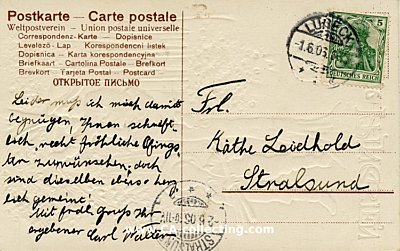 Postkarte — Carte postale
Weltpostverein — Union postale universelle
Correspondenz-Karte — Dopisnice
Levelező-Lap — Korespondencni listek
Dopisnica — Karta korespondencyjna
Briefkaart — Cartolina Postale — Brefkort
Brevkort — Tarjeta Postal — Postcard
ОТКРЫТОЕ ПИСЬМО
LÜBECK
1.6.06
5
DEUTSCHES REICH
Leider muß ich mich damit
begnügen Ihnen schrift-
lich, recht fröhliche Pfings-
ten zu wünschen, doch
sind dieselben ebenso herz-
lich gemeint.
Mit frdl. Gruß Ihr
ergebener Carl
Frl.
Käthe Leidhold
Stralsund
STRALSUND
2.6.06
www.CA-collecting.com